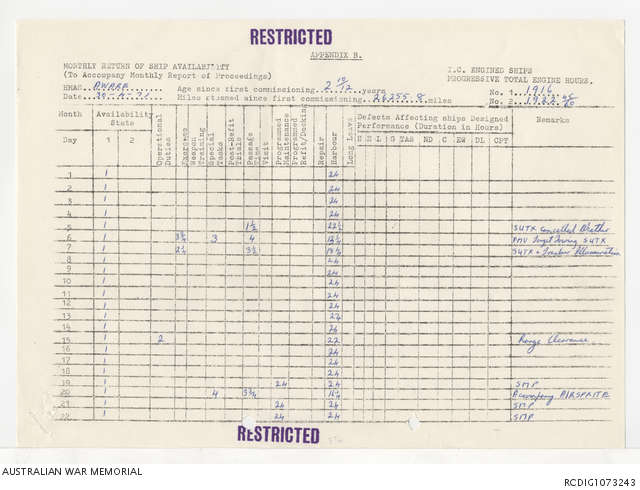 RESTRICTED
APPENDIX B.
MONTHLY RETURN OF SHIP AVAILABILITY
(To Accompany Monthly Report of Proceedings)
I.C. ENGINED SHIPS
PROGRESSIVE TOTAL ENGINE HOURS.
HMAS Age since first commissioning 2 10/12 years No. 1 1916
Date Miles steamed since first commissioning 26255.8 miles No. 2 1933
Month Availability State Operational Duties Exercises Weapon Training Special Tasks Post-Refit Trials Passage Time Visit Programmed Maintenance Programmed Refit/Docking Repair Harbour Long Leave Defects Affecting Ships Designed Performance (Duration in Hours) Remarks
Day 1 2 G TAS ND C EW DL OPT
1 1 24
2 1 24
3 1 24
4 1 24
5 1 1½ 22½ SUTX Cancelled Weather
6 1 3 4 PMV Target Towing SUTX
7 1 3½ SUTX +
8 1 24
9 1 24
10 1 24
11 1 24
12 1 24
13 1 24
14 1 24
15 1 2 22 Range Clearance
16 1 24
17 1 24
18 1 24
19 1 24 24 SMP
20 1 4 AIRSPRITE
21 1 24 24 SMP
22 1 24 24 SMP
RESTRICTED
AUSTRALIAN WAR MEMORIAL
RCDIG1073243